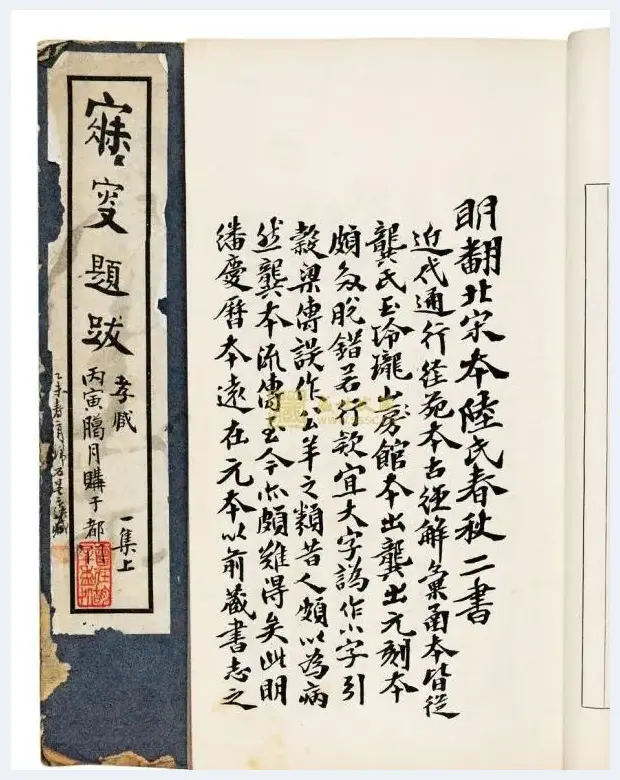 寐叟題跋
孝臧
一集上
丙寅臈月購于都
明翻北宋本陸氏春秋二書
近代通行經苑本古經解彙函本皆從
龔氏玉玲瓏山房館本出龔出元刻本
頗多脫錯若行款宜大字譌作小字引
穀梁傳誤作公羊之類昔人頗以為病
然龔本流傳至今亦頗難得矣此明
繙慶曆本遠在元本以前藏書志之